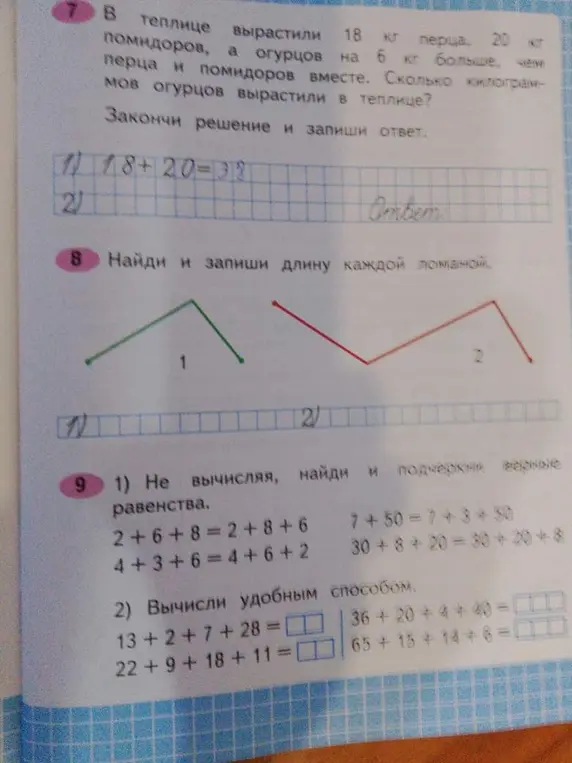 7 В теплице вырастили 18 кг перца, 20 кг
помидоров, а огурцов на 6 кг больше, чем
перца и помидоров вместе. Сколько килограм-
мов огурцов вырастили в теплице?
Закончи решение и запиши ответ.
1) 18+20=38
2) Ответ
8 Найди и запиши длину каждой ломаной.
1 2
1) 2)
9 1) Не вычисляя, найди и подчеркни верные
равенства.
2 + 6 + 8 = 2 + 8 + 6 7 + 50 = 7 + 3 + 50
4 + 3 + 6 = 4 + 6 + 2 30 + 8 + 20 = 30 + 20 + 8
2) Вычисли удобным способом.
13 + 2 + 7 + 28 = 36 + 20 + 4 + 40 =
22 + 9 + 18 + 11 = 65 + 15 + 14 + 6 =